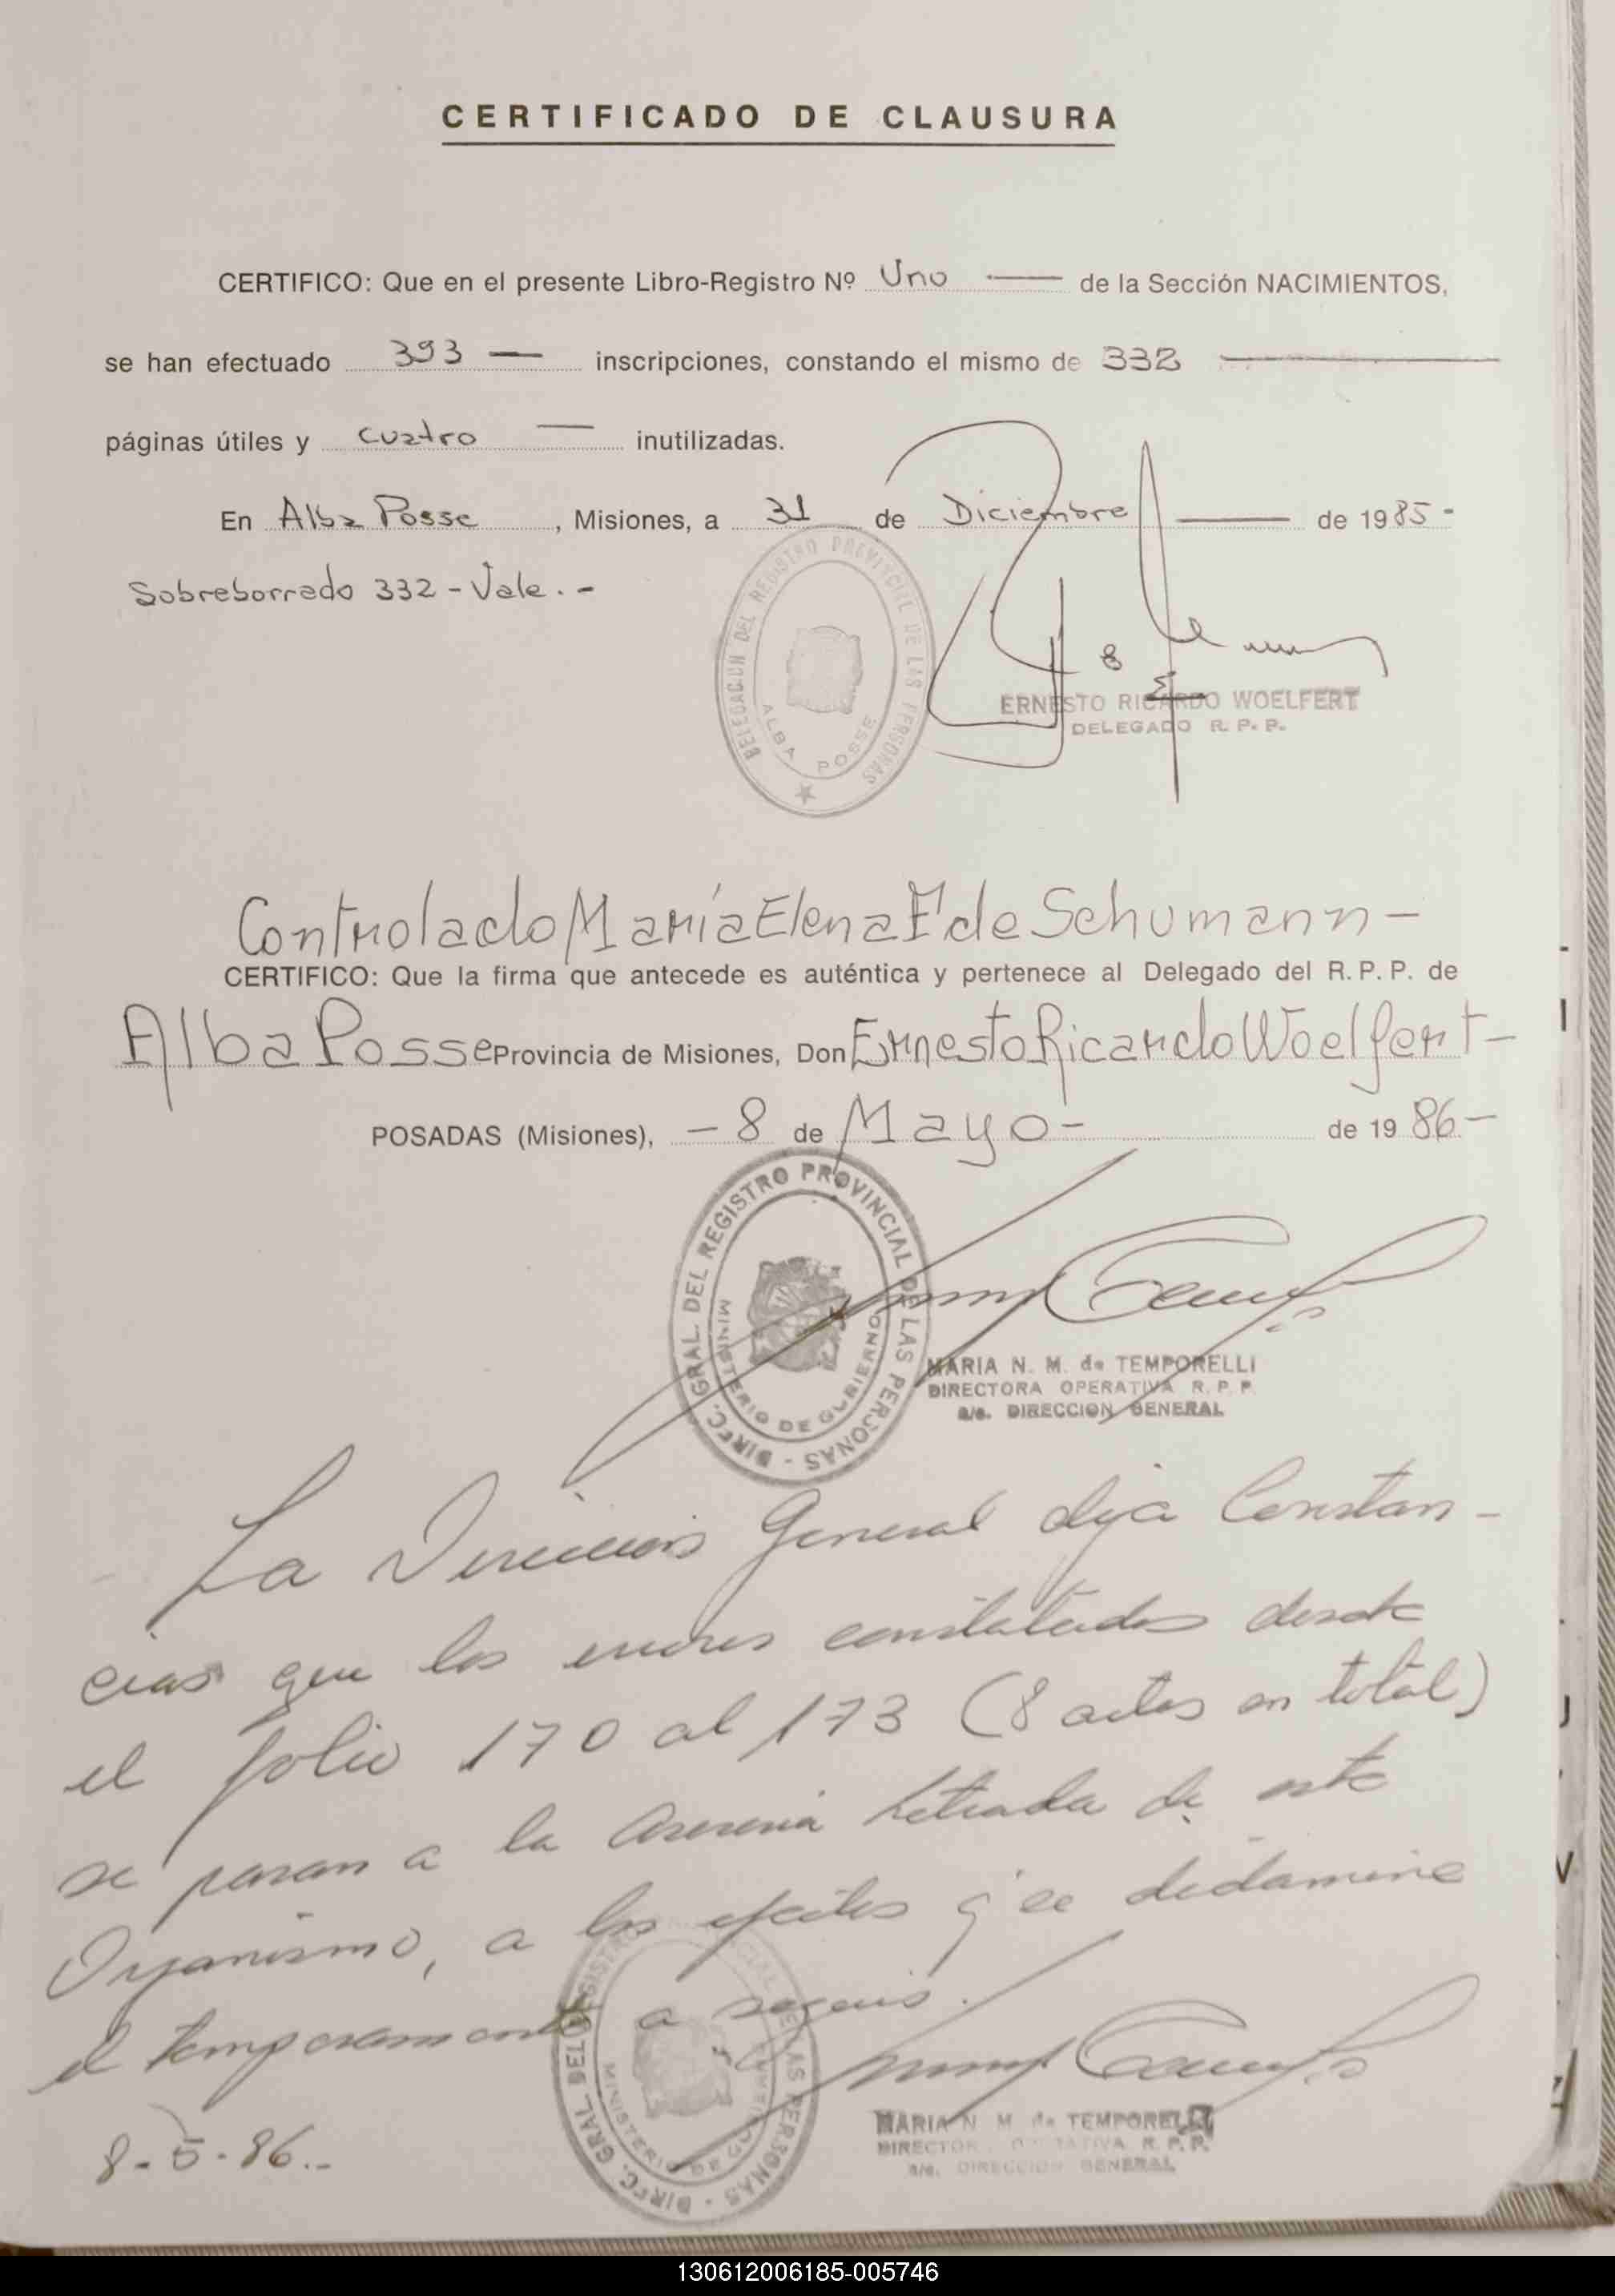 CERTIFICADO DE CLAUSURA
CERTIFICO: Que en el presente Libro-Registro Nº Uno — de la Sección NACIMIENTOS,
se han efectuado 393 — inscripciones, constando el mismo de 332 —
páginas útiles y cuatro — inutilizadas.
En Alba Posse, Misiones, a 31 de Diciembre — de 1985-
Sobreborrado 332 - Vale. -
DELEGACION DEL REGISTRO PROVINCIAL DE LAS PERSONAS
ALBA POSSE
ERNESTO RICARDO WOELFERT
DELEGADO R. P. P.
Controlado María Elena F de Schumann -
CERTIFICO: Que la firma que antecede es auténtica y pertenece al Delegado del R. P. P. de
Alba Posse Provincia de Misiones, Don Ernesto Ricardo Woelfert -
POSADAS (Misiones), - 8 de Mayo - de 1986 -
DIREC. GRAL. DEL REGISTRO PROVINCIAL DE LAS PERSONAS -
MINISTERIO DE GOBIERNO
MARIA N. M. de TEMPORELLI
DIRECTORA OPERATIVA R. P. P.
a/c. DIRECCION GENERAL
La Dirección General deja Constan-
cias que los errores constatados desde
el folio 170 al 173 (8 actas en total)
se pasan a la Asesoria Letrada de este
Organismo, a los efectos q' se dictamine
el temperamento a seguir.
DIREC. GRAL. DEL REGISTRO PERSONAS -
MINISTERIO DE
MARIA N. M. de TEMPORELLI
DIRECTORA OPERATIVA R. P. P.
a/c. DIRECCION GENERAL
8-5-86.-
130612006185-005746